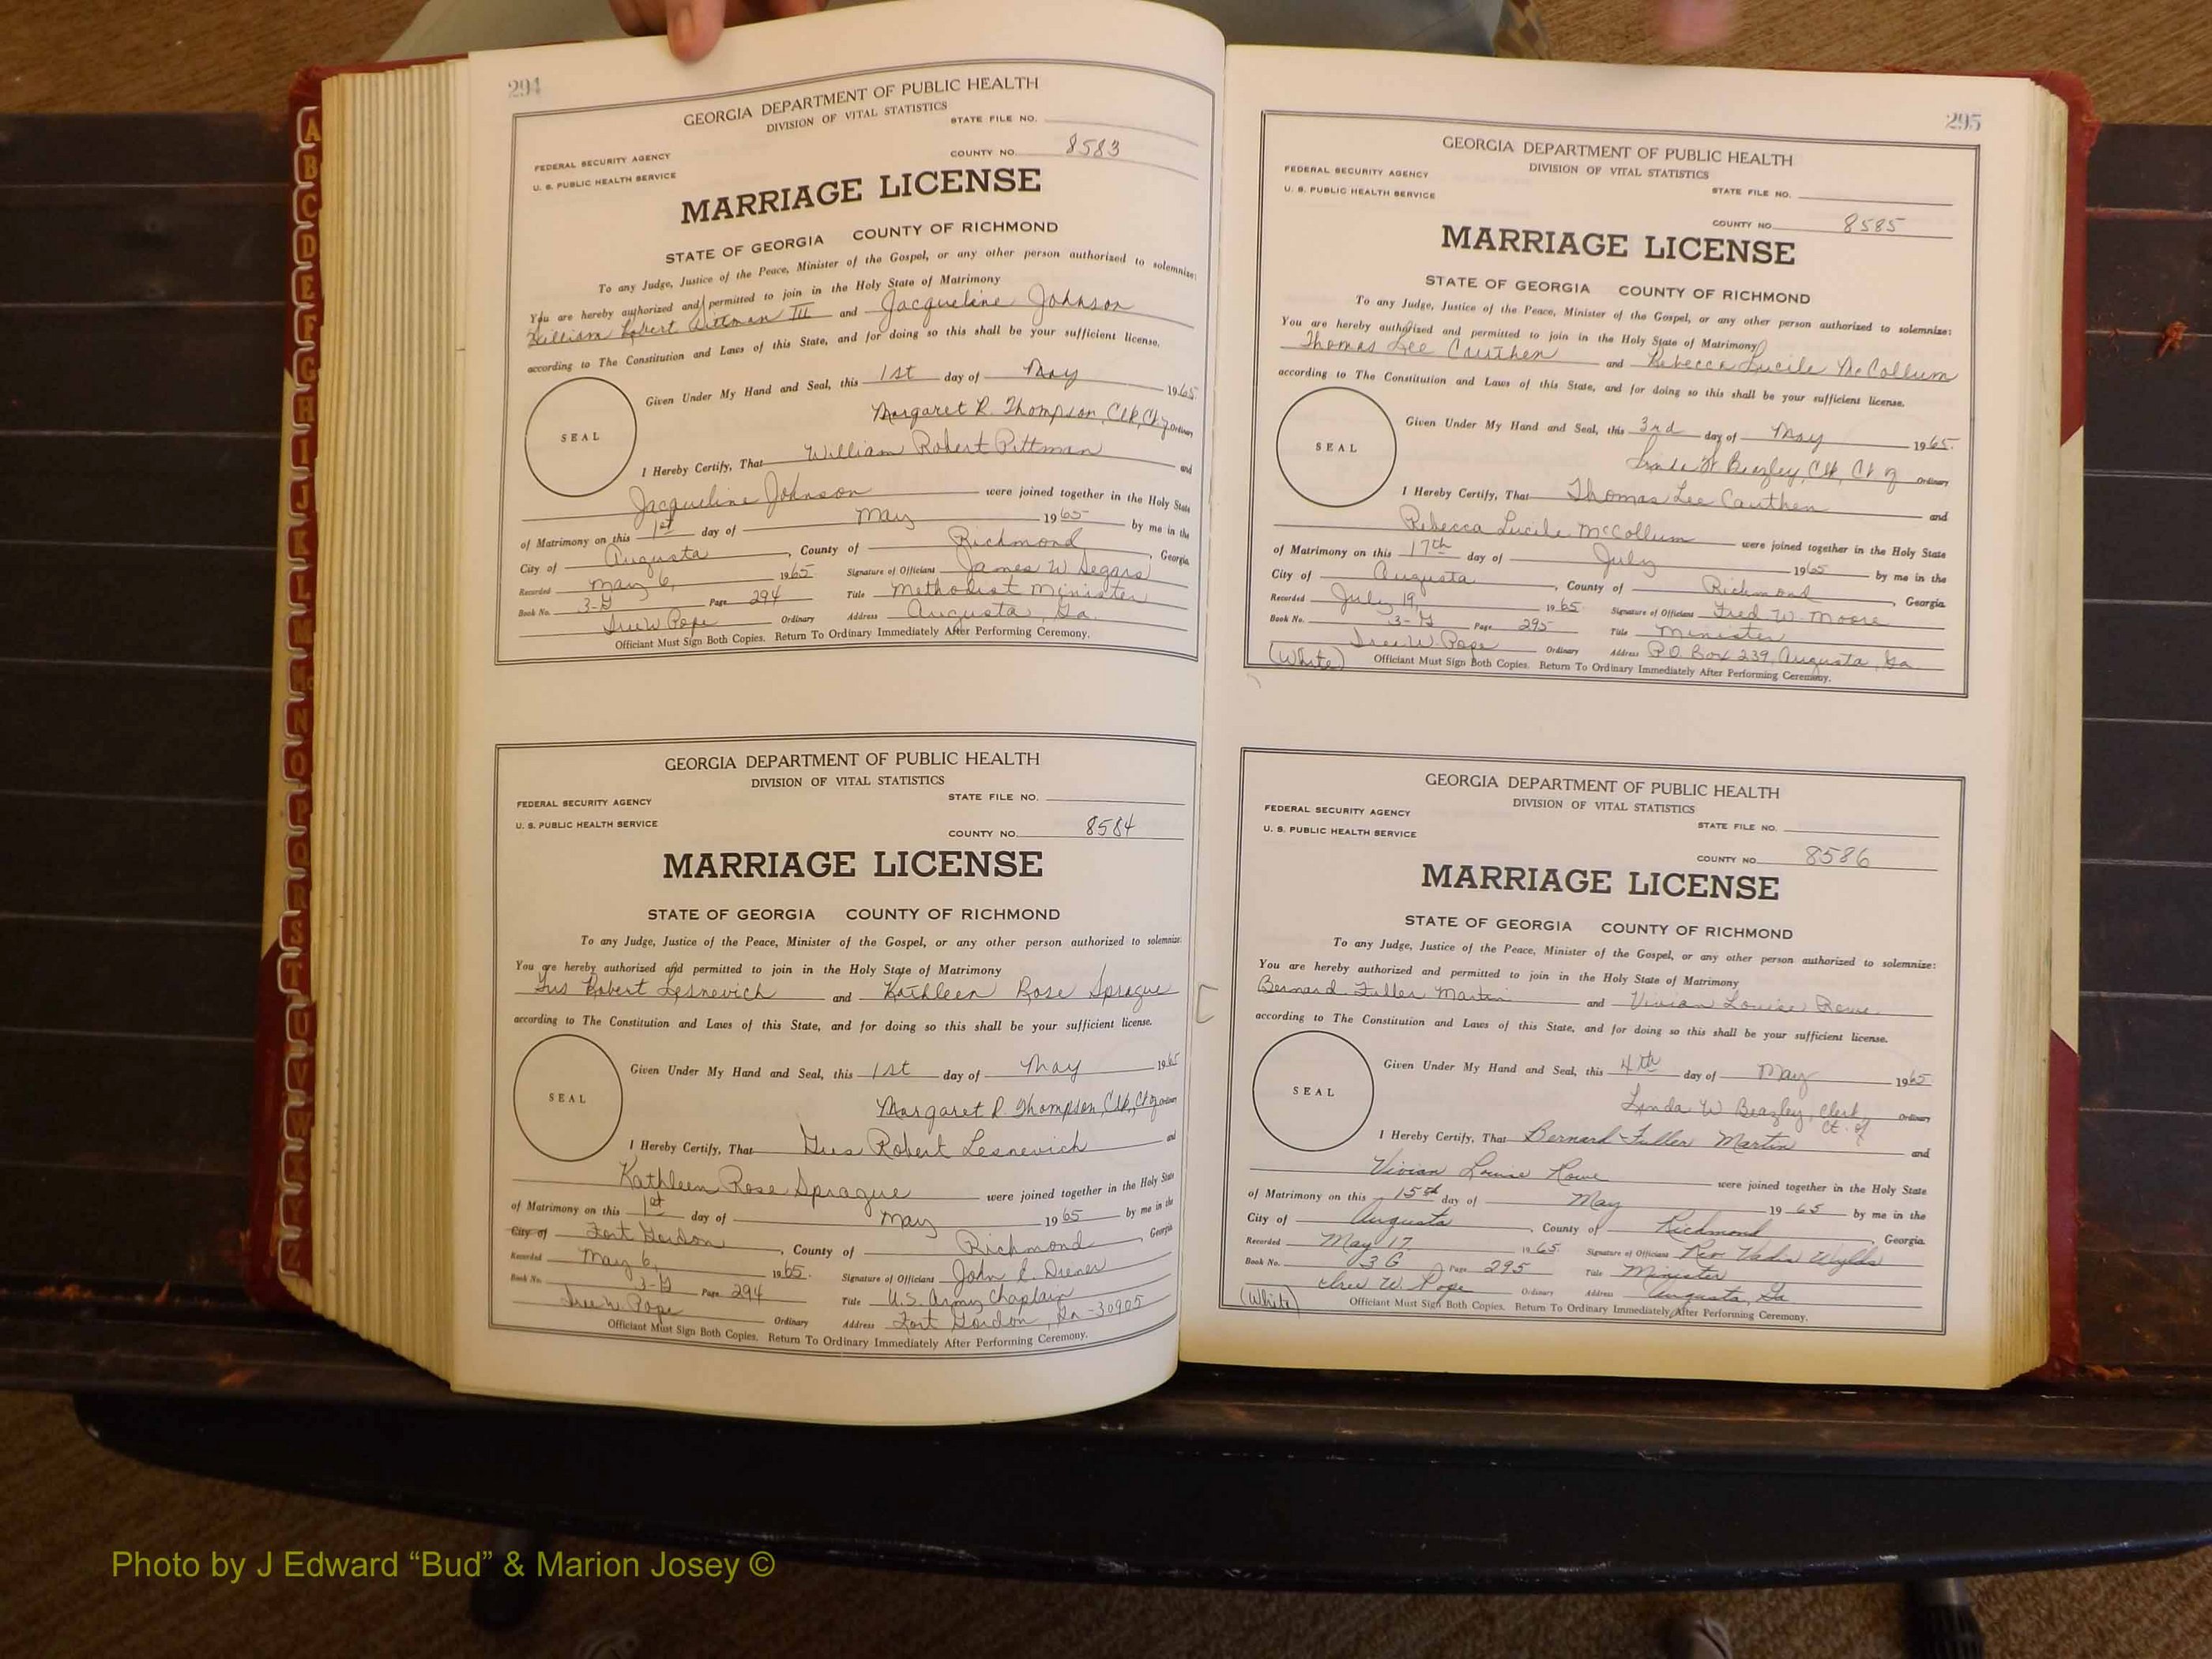 294
GEORGIA DEPARTMENT OF PUBLIC HEALTH
DIVISION OF VITAL STATISTICS
STATE FILE NO.
FEDERAL SECURITY AGENCY
U. S. PUBLIC HEALTH SERVICE
COUNTY NO. 8583
MARRIAGE LICENSE
STATE OF GEORGIA COUNTY OF RICHMOND
To any Judge, Justice of the Peace, Minister of the Gospel, or any other person authorized to solemnize:
You are hereby authorized and permitted to join in the Holy State of Matrimony
William Robert Pittman III and Jacqueline Johnson
according to The Constitution and Laws of this State, and for doing so this shall be your sufficient license.
Given Under My Hand and Seal, this 1st day of May 1965
SEAL
Margaret R. Thompson, Clk, Ct of Ordinary
I Hereby Certify, That William Robert Pittman and
Jacqueline Johnson were joined together in the Holy State
of Matrimony on this 1st day of May 1965 by me in the
City of Augusta, County of Richmond, Georgia
Recorded May 6, 1965 Signature of Officiant James W Segars
Book No. 3-G Page 294 Title Methodist Minister
Ordinary Address Augusta, Ga.
Officiant Must Sign Both Copies. Return To Ordinary Immediately After Performing Ceremony.
GEORGIA DEPARTMENT OF PUBLIC HEALTH
DIVISION OF VITAL STATISTICS
STATE FILE NO.
FEDERAL SECURITY AGENCY
U. S. PUBLIC HEALTH SERVICE
COUNTY NO. 8584
MARRIAGE LICENSE
STATE OF GEORGIA COUNTY OF RICHMOND
To any Judge, Justice of the Peace, Minister of the Gospel, or any other person authorized to solemnize:
You are hereby authorized and permitted to join in the Holy State of Matrimony
Gus Robert Lesnevich and Kathleen Rose Sprague
according to The Constitution and Laws of this State, and for doing so this shall be your sufficient license.
Given Under My Hand and Seal, this 1st day of May 1965
SEAL
Margaret R. Thompson, Clk, Ct of Ordinary
I Hereby Certify, That Gus Robert Lesnevich and
Kathleen Rose Sprague were joined together in the Holy State
of Matrimony on this 1st day of May 1965 by me in the
City of Fort Gordon, County of Richmond, Georgia
Recorded May 6, 1965. Signature of Officiant John E.
Book No. 3-G Page 294 Title U.S. Army Chaplain
Ordinary Address Fort Gordon, Ga-30905
Officiant Must Sign Both Copies. Return To Ordinary Immediately After Performing Ceremony.
295
GEORGIA DEPARTMENT OF PUBLIC HEALTH
DIVISION OF VITAL STATISTICS
FEDERAL SECURITY AGENCY
U. S. PUBLIC HEALTH SERVICE
STATE FILE NO.
COUNTY NO. 8585
MARRIAGE LICENSE
STATE OF GEORGIA COUNTY OF RICHMOND
To any Judge, Justice of the Peace, Minister of the Gospel, or any other person authorized to solemnize:
You are hereby authorized and permitted to join in the Holy State of Matrimony
Thomas Lee Cauthen and Rebecca Lucile McCollum
according to The Constitution and Laws of this State, and for doing so this shall be your sufficient license.
Given Under My Hand and Seal, this 3rd day of May 1965.
SEAL
Linda W Beazley, Clk, Ct of Ordinary
I Hereby Certify, That Thomas Lee Cauthen and
Rebecca Lucile McCollum were joined together in the Holy State
of Matrimony on this 17th day of July 1965 by me in the
City of Augusta, County of Richmond, Georgia
Recorded July 19, 1965 Signature of Officiant Fred W. Moore
Book No. 3-G Page 295 Title Minister
Ordinary Address P.O. Box 239, Augusta, Ga
(White) Officiant Must Sign Both Copies. Return To Ordinary Immediately After Performing Ceremony.
GEORGIA DEPARTMENT OF PUBLIC HEALTH
DIVISION OF VITAL STATISTICS
FEDERAL SECURITY AGENCY
U. S. PUBLIC HEALTH SERVICE
STATE FILE NO.
COUNTY NO. 8586
MARRIAGE LICENSE
STATE OF GEORGIA COUNTY OF RICHMOND
To any Judge, Justice of the Peace, Minister of the Gospel, or any other person authorized to solemnize:
You are hereby authorized and permitted to join in the Holy State of Matrimony
Bernard Fuller Martin and Vivian Louise Rowe
according to The Constitution and Laws of this State, and for doing so this shall be your sufficient license.
Given Under My Hand and Seal, this 4th day of May 1965
SEAL
Linda W Beazley, Clerk, Ct. of Ordinary
I Hereby Certify, That Bernard Fuller Martin and
Vivian Louise Rowe were joined together in the Holy State
of Matrimony on this 15th day of May 1965 by me in the
City of Augusta, County of Richmond, Georgia
Recorded May 17, 1965 Signature of Officiant Rev.
Book No. 3G Page 295 Title Minister
Ordinary Address Augusta, Ga
(White) Officiant Must Sign Both Copies. Return To Ordinary Immediately After Performing Ceremony.
A
B
C
D
E
F
G
H
I
J
K
L
M
Mc
N
O
P
Q
R
S
T
U
V
W
X
Y
Z
Photo by J Edward “Bud” & Marion Josey ©